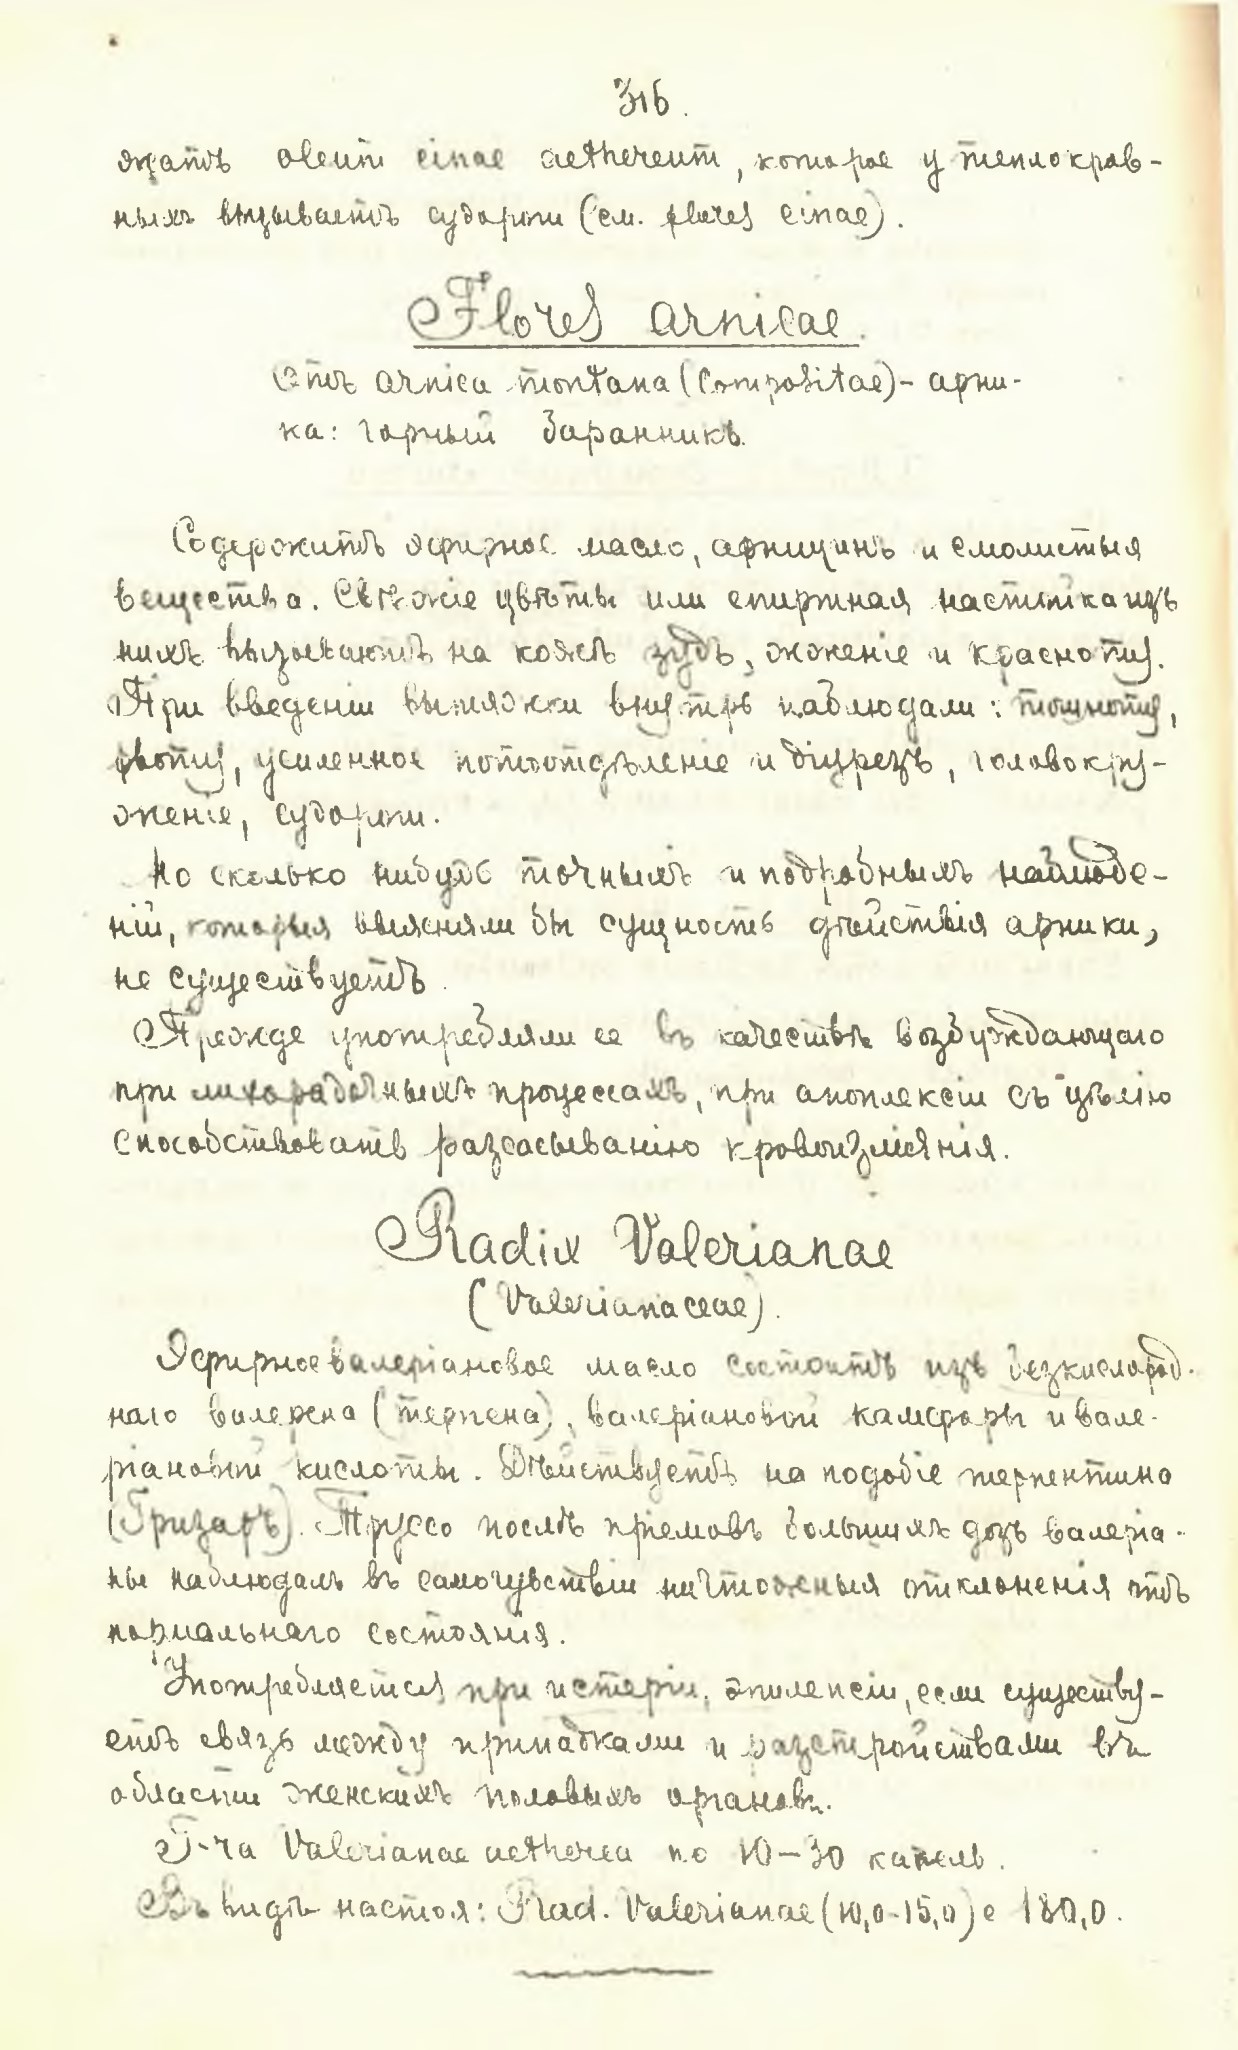 316.
жатъ oleum cinae aethereum, которое у теплокров-
ныхъ вызываетъ судорги (см. flores cinae).
Flores arnicae.
Отъ arnica montana (Compositae) - арни-
ка: горный баранникъ.
Содержитъ эфирное масло, арницинъ и смолистыя
вещества. Свѣжіе цвѣты или спиртная настойка изъ
нихъ вызываютъ на кожѣ зудъ, жженіе и красноту.
При введеніи вытяжки внутрь наблюдали: тошноту,
рвоту, усиленное потоотдѣленіе и діурезъ, головокру-
женіе, судорги.
Но сколько нибудь точныхъ и подробныхъ наблюде-
ній, которыя выясняли бы сущность дѣйствія арники,
не существуетъ.
Прежде употребляли ее въ качествѣ возбуждающаго
при лихорадочныхъ процессахъ, при апоплексіи съ цѣлію
способствовать разсасыванію кровоизліянія.
Radix Valerianae
(Valerianaceae).
Эфирное валеріановое масло состоитъ изъ безкислород-
наго валерена (терпена), валеріановой камфоры и вале-
ріановой кислоты. Дѣйствуетъ на подобіе терпентина
(Гризаръ). Труссо послѣ пріемовъ большихъ дозъ валеріа-
ны наблюдалъ въ самочувствіи ничтожныя отклоненія отъ
нормальнаго состоянія.
Употребляется при истеріи, эпилепсіи, если существу-
етъ связь между припадками и разстройствами въ
области женскихъ половыхъ органовъ.
T-ra Valerianae aetherea по 10-30 капель.
Въ видѣ настоя: Rad. Valerianae (10,0-15,0) e 180,0.